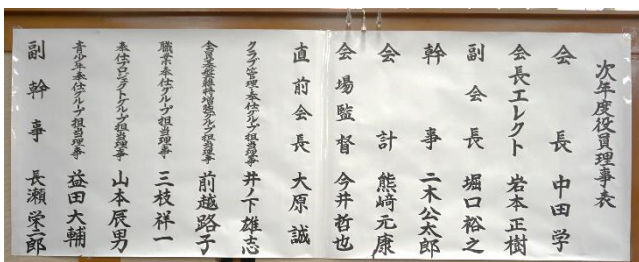 次年度役員理事表
会長 中田学
会長エレクト 岩本正樹
副会長 堀口裕之
幹事 二木公太郎
会計 熊﨑元康
会場監督 今井哲也
直前会長 大原誠
クラブ管理・奉仕グループ担当理事 井ノ下雄志
会員基盤維持増強グループ担当理事 前越路子
職業奉仕グループ担当理事 三枝祥一
奉仕プロジェクトグループ担当理事 山本辰男
青少年奉仕グループ担当理事 益田大輔
副幹事 長瀬栄二郎